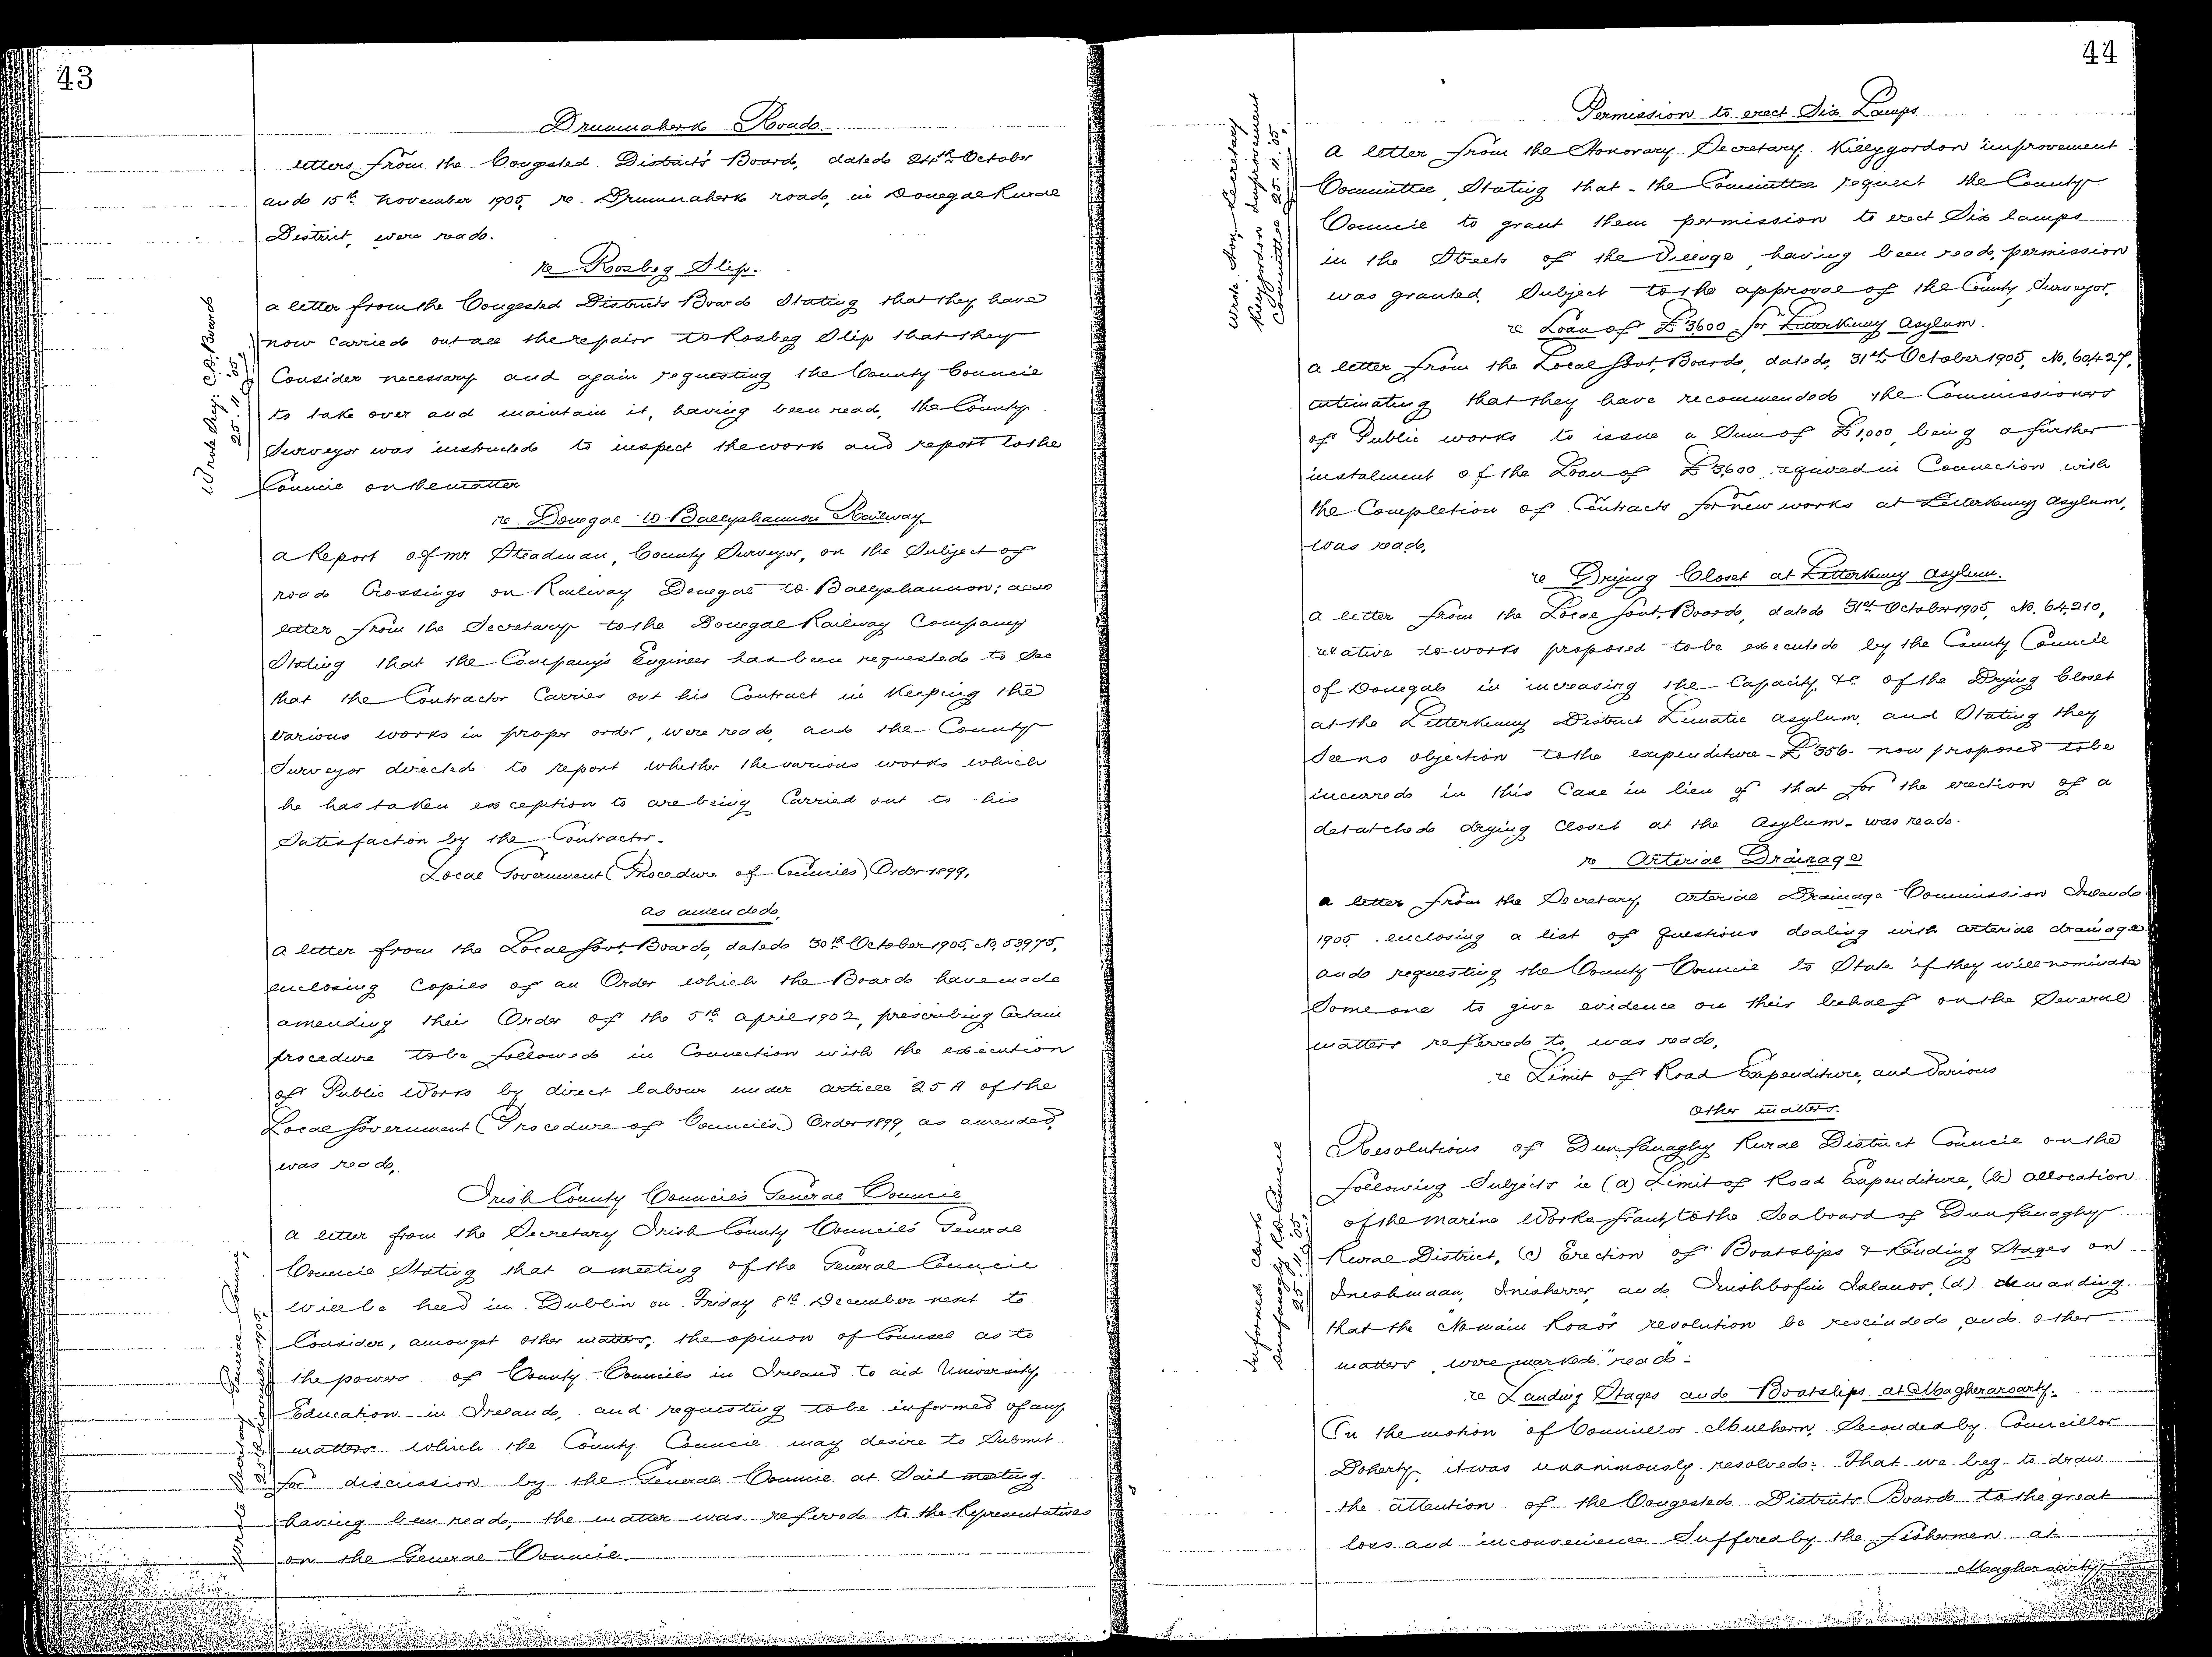 43
Drumnaherk Road.
letters from the Congested Districts Board, dated 24th October
and 15th November 1905, re Drumnaherk road, in Donegal Rural
District, were read.
re Rosbeg Slip.
Wrote Secy: C.D. Board
25.11.05.
a letter from the Congested Districts Board Stating that they have
now carried out all the repairs to Rosbeg Slip that they
Consider necessary and again requesting the County Council
to take over and maintain it, having been read, the County
Surveyor was instructed to inspect the work and report to the
Council on the matter
re Donegal to Ballyshannon Railway
a Report of Mr. Steadman, County Surveyor, on the Subject of
road Crossings on Railway Donegal to Ballyshannon; also
letter from the Secretary to the Donegal Railway Company
Stating that the Company's Engineer has been requested to See
that the Contractor Carries out his Contract in Keeping the
various works in proper order, were read, and the County
Surveyor directed to report whether the various works which
he has taken exception to are being Carried out to his
Satisfaction by the Contractor.
Local Government (Procedure of Councils) Order 1899,
as amended.
a letter from the Local Govt. Board, dated 30th October 1905, No. 53975,
enclosing Copies of an Order which the Board have made
amending their Order of the 5th april 1902, prescribing Certain
procedure to be followed in Connection with the execution
of Public Works by direct labour under article 25 A of the
Local Government (Procedure of Councils) Order 1899, as amended,
was read,
Irish County Councils General Council
Wrote Secretary General Council,
25th November 1905.
a letter from the Secretary Irish County Councils' General
Council Stating that a meeting of the General Council
will be held in Dublin on Friday 8th December next to
Consider, amongst other matters, the opinion of Counsel as to
the powers of County Councils in Ireland to aid University
Education in Ireland, and requesting to be informed of any
matters which the County Council may desire to Submit
for discussion by the General Council at Said meeting
having been read, the matter was referred to the Representatives
on the General Council.
44
Permission to erect Six Lamps
Wrote Hon. Secretary
Killygordon Improvement
Committee 25.11.05.
a letter from the Honorary Secretary, Killygordon improvement
Committee, Stating that the Committee request the County
Council to grant them permission to erect Six lamps
in the Streets of the Village, having been read, permission
was granted, Subject to the approval of the County Surveyor.
re Loan of £3600 for Letterkenny Asylum.
a letter from the Local Govt. Board, dated, 31st October 1905, No. 60427,
intimating that they have recommended the Commissioners
of Public works to issue a Sum of £1,000, being a further
instalment of the Loan of £3,600 required in Connection with
the Completion of Contracts for new works at Letterkenny asylum,
was read,
re Drying Closet at Letterkenny asylum.
a letter from the Local Govt. Board, dated 31st October 1905, No. 64,210,
relative to works proposed to be executed by the County Council
of Donegal in increasing the Capacity, &c of the Drying Closet
at the Letterkenny District Lunatic asylum, and Stating they
See no objection to the expenditure - £356 - now proposed to be
incurred in this Case in lieu of that for the erection of a
detatched drying Closet at the Asylum - was read.
re Arterial Drainage
a letter from the Secretary, Arterial Drainage Commission Ireland
1905, enclosing a list of questions dealing with arterial drainage
and requesting the County Council to State if they will nominate
Someone to give evidence on their behalf on the Several
matters referred to, was read,
re Limit of Road Expenditure, and Various
other matters.
Informed Clerk
Dunfanaghy R.D. Council
25.11.05.
Resolutions of Dunfanaghy Rural District Council on the
following Subjects ie (a) Limit of Road Expenditure, (b) allocation
of the Marine Works Grant to the Seaboard of Dunfanaghy
Rural District, (c) Erection of Boatslips & Landing Stages on
Inishmaan, Inisherrer, and Inishbofin Islands, (d) demanding
that the "No main Roads" resolution be rescinded, and other
matters, were marked "read".
re Landing Stages and Boatslips at Magheraroarty.
On the motion of Councillor Mulhern, Seconded by Councillor
Doherty, it was unanimously resolved: That we beg to draw
the attention of the Congested Districts Board to the great
loss and inconvenience Suffered by the fishermen at